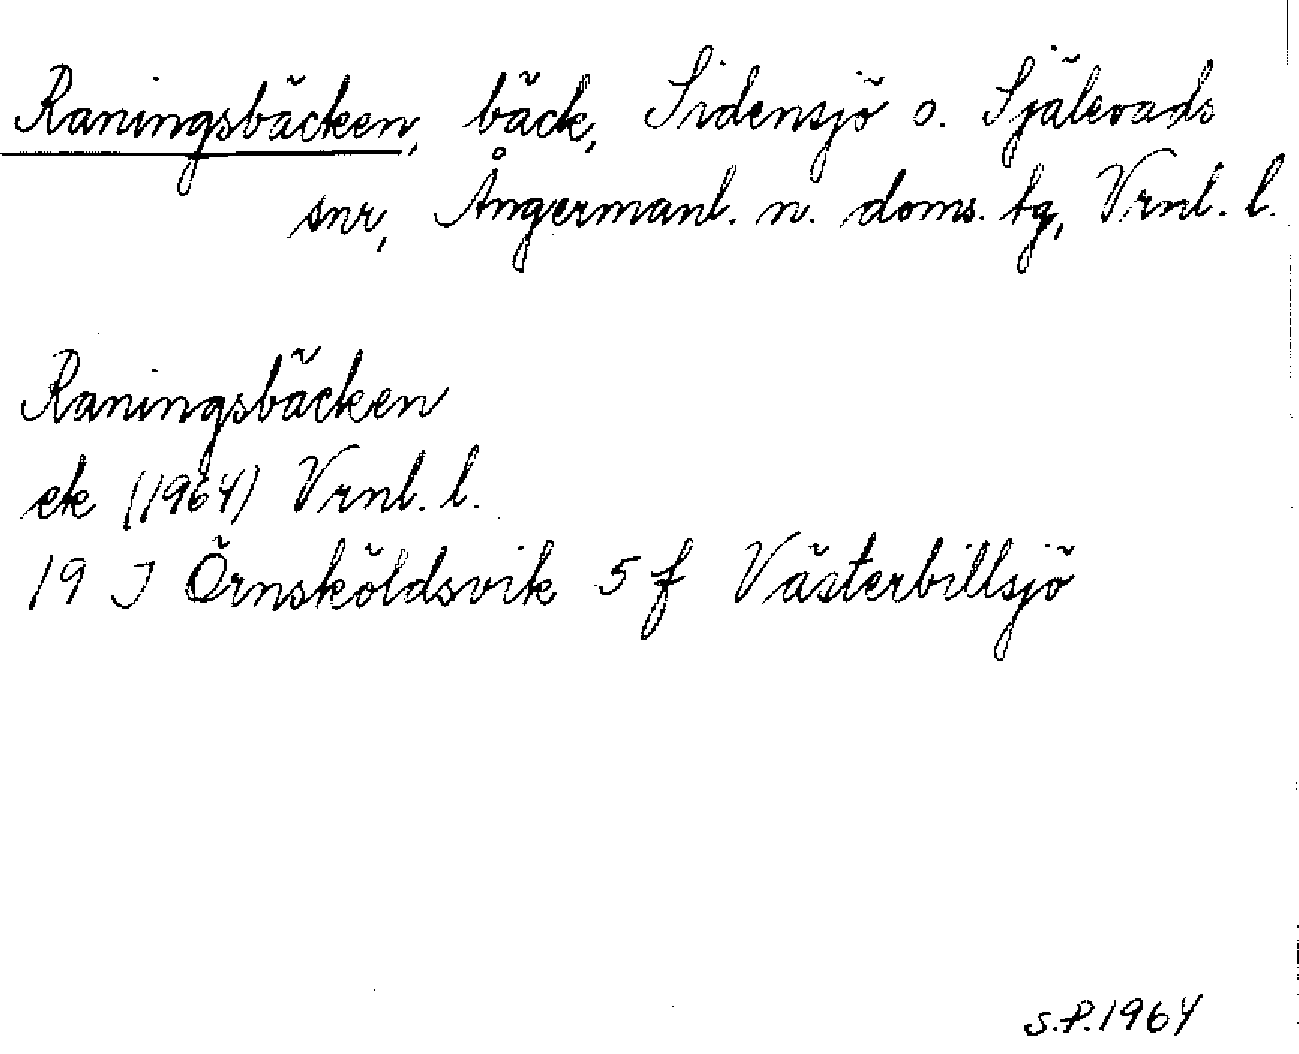 Raningsbäcken, bäck, Sidensjö o. Själevads
snr, Ångermanl. n. doms. tg, Vrnl. l.
Raningsbäcken
ek (1964) Vrnl. l.
19 J Örnsköldsvik 5 f Västerbillsjö
S.P. 1964